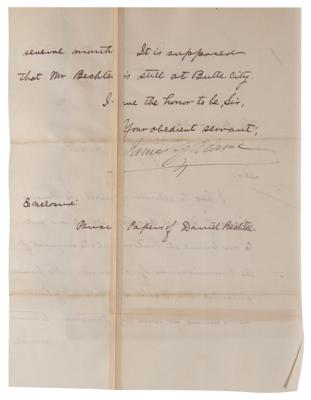 several month It is supposed
that Mr Bechte is still at Butte City.
I ave the honor to be, Sir,
Your obedient servant,
James
Enclosure:
Papers of Daniel Bechtel.